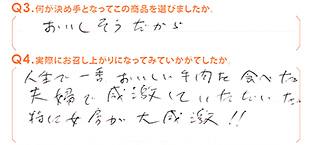 Q3.何が決め手となってこの商品を選びましたか。
おいしそうだから
Q4.実際にお召し上がりになってみていかがでしたか。
人生で一番おいしい牛肉を食べた
夫婦で感激していただいた
特に女房が大感激!!